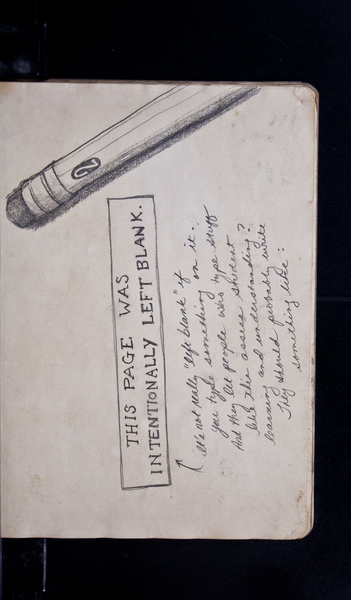 2
THIS PAGE WAS
INTENTIONALLY LEFT BLANK.
It's not really "left blank" if
you type something on it.
And they let people who type stuff
like this assess student
learning and understanding?
They should probably write
something like: